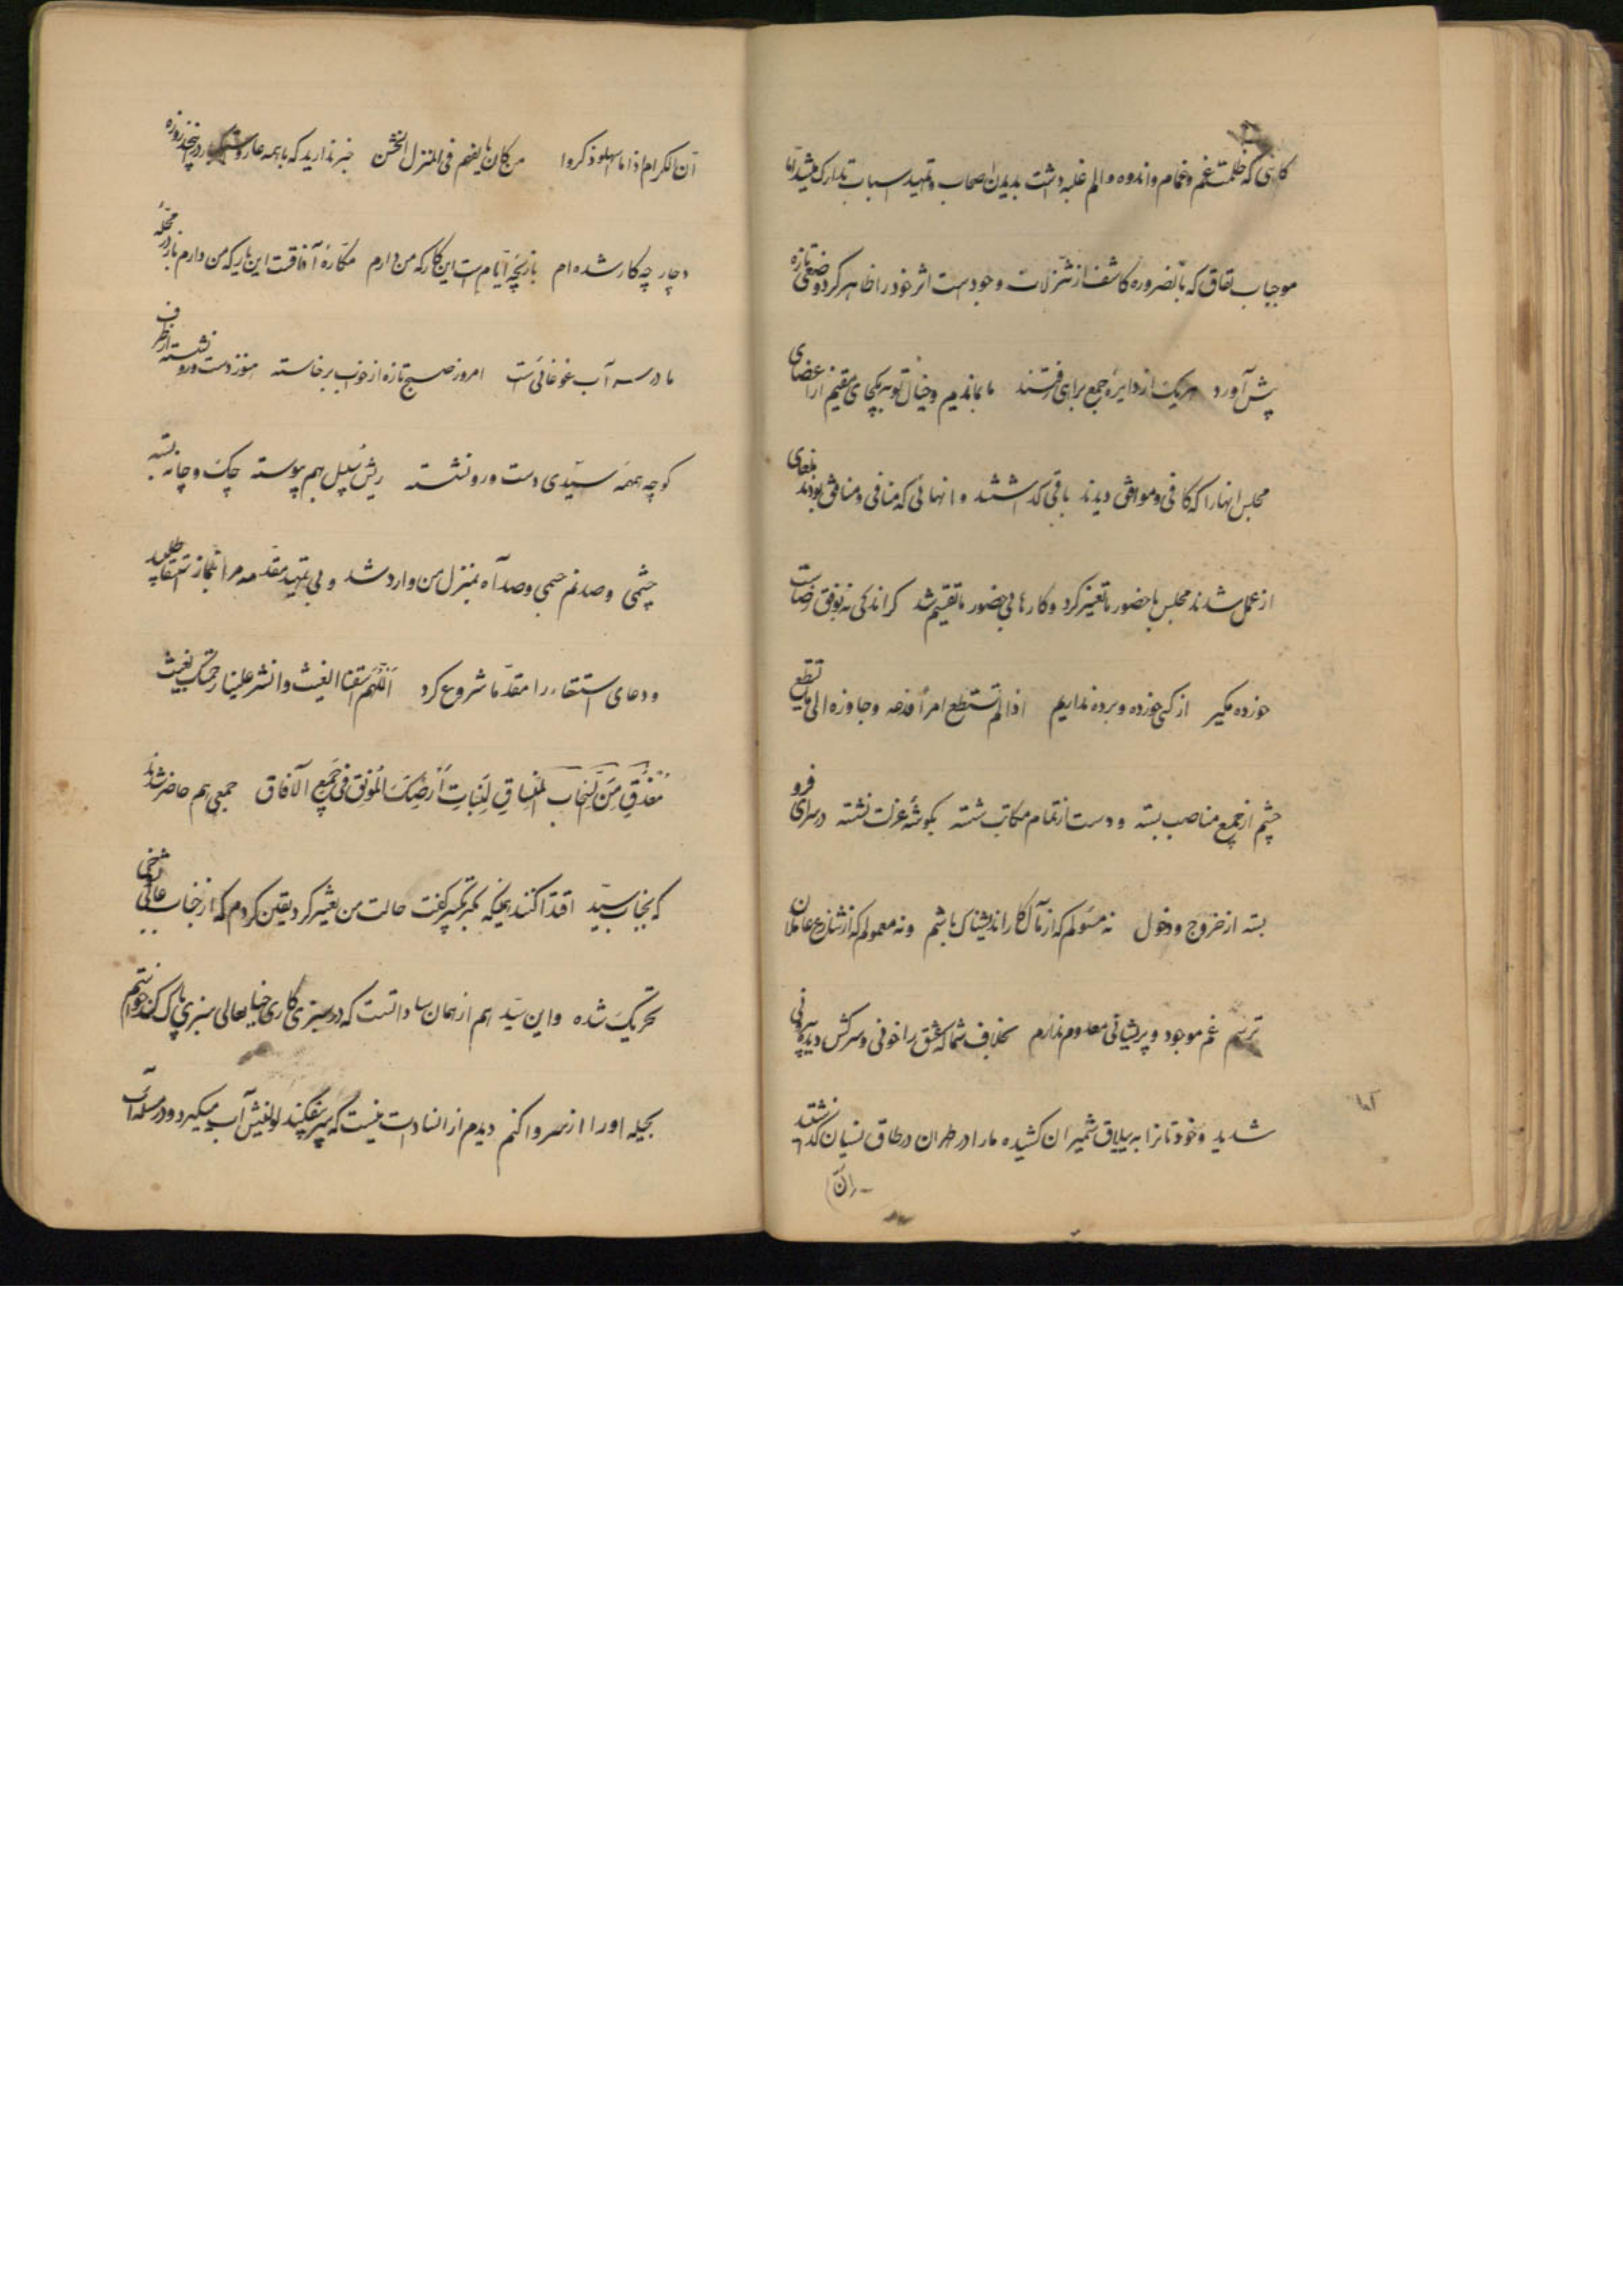 گاهی که ظلمت غم و غمام و اندوه و الم غلبه داشت بدیدن اصحاب و تمهید اسباب تدارک میشد
موجبات نفاق که بالضروره کاشف از تنزلات وجود است اثر خود را ظاهر کرد وضعی تازه
پیش آورد هر یک از دایره جمع براهی رفتند ما بماندیم و خیال تو بیکجای مقیم از اعضای
مجلس انها را که کافی و موافق دیدند باقی گذاشتند و انهائی که منافی و منافق بودند
از عمل شدند مجلس با حضور ما تغییر کرد و کارها بی حضور ما تقسیم شد گر اندکی نه بوفق رضاست
خورده مگیر از کسی خورده و برده نداریم اذا لم تستطع امراً فدعه و جاوزه الی ما تستطع
چشم از جمیع مناصب بسته و دست از تمام مکاتب شسته بگوشه عزلت نشسته در سرای فرو
بسته از خروج و دخول نه مسولم که از مآل کار اندیشناک باشم و نه معمولم که از عاملان
ترسم غم موجود و پریشانی معدوم ندارم بخلاف شما که عشق را خونی و سرکش دیده بیرونی
شدید و خود تانرا به ییلاق شمیران کشیده ما را در طهران در طاق نسیان گذاشتند
ان
ان الکرام اذا ما اسهلوا ذکروا من کان یالفهم فی المنزل الخشن خبر ندارید که با همه عار و در این پنجروزه
دچار چه کار شده ام بازیچه ایام است این کار که من دارم مکاره آفاقست این یار که من دارم باز در محله
ما در سر آب غوغائی است امروز صبح تازه از خواب برخاسته هنوز دست و رو نشسته از طرف
کوچه همهمه سیدی دست و رو نشسته ریش سبیل بهم پیوسته چک و چانه بسته
چشمی و صد نم جسمی و صد آه بمنزل من وارد شد و بی تمهید مقدمه مرا بنماز استسقا طلبید
و دعای استسقاء را مقدما شروع کرد اللهم اسقنا الغیث و انشر علینا رحمتک بغیثک
المغدق من السحاب المنساق لنبات ارضک المونق فی جمیع الافاق جمعی هم حاضر شدند
که بجناب سید اقتدا کنند همینکه تکبیر گفت حالت من تغییر کرد یقین کردم که از جناب عالی
تحریک شده و این سید هم از همان ساداتست که در سبزی کاری خیابعالی سبزی پاک کند خواستم
بحیله او را از سر وا کنم دیدم از انسادات نیست که آب میگیرد و در مسئله آب